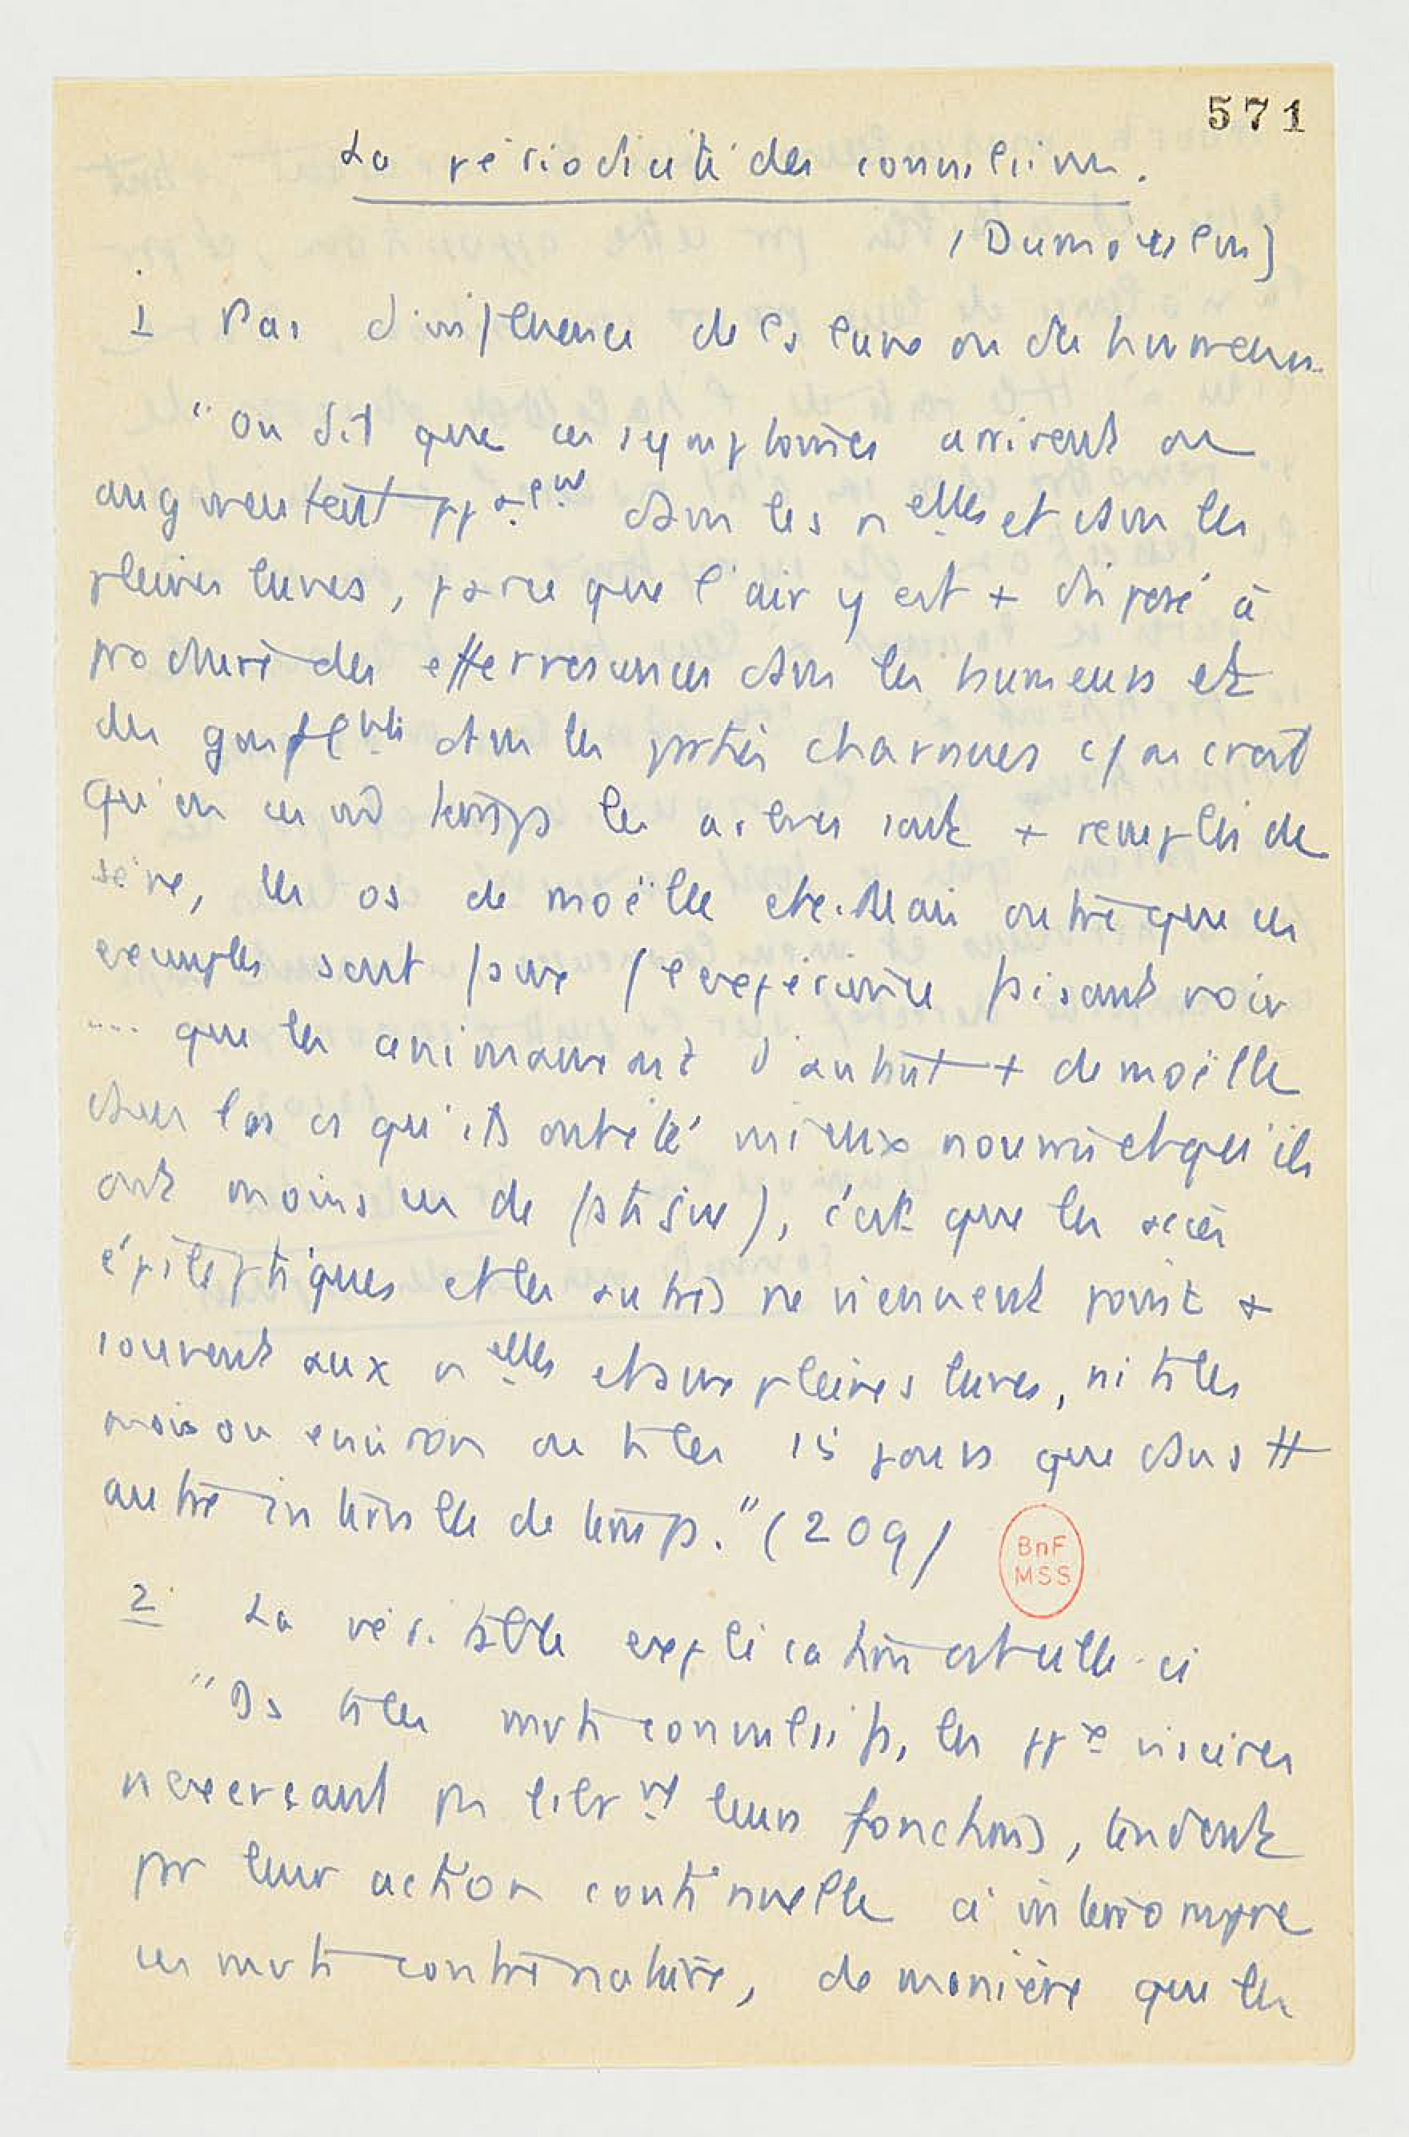 571
La périodicité des convulsions.
(Dumoulin)
1 Pas d'influence de la lune ou des humeurs.
"On dit que ces symptômes arrivent ou
augmentent ppalemt dans les nelles et dans les
pleines lunes, parce que l'air y est + disposé à
produire des effervescences dans les humeurs et
des gonflmts dans les parties charnues c/ on croit
qu'en ces md temps les arbres sont + remplis de
sève, les os de moëlle etc. Mais outre que ces
exemples sont faux (l'expérience faisant voir
.... que les animaux ont d'autant + de moëlle
dans les os qu'ils ont été mieux nourris et qu'ils
ont moins eu de fatigue), c'est que les accès
épileptiques et les autres ne viennent point +
souvent aux nelles et aux pleines lunes, ni ts les
mois ou environ ou ts les 15 jours que dans tt
autre intervalle de temps." (209)
BnF
MSS
2 La véritable explication est celle-ci
"Ds ts les mvts convulsifs, les ppx viscères
n'exerçant pas librmt leurs fonctions, tendent
par leur action continuelle à interrompre
ces mvts contre nature, de manière que les